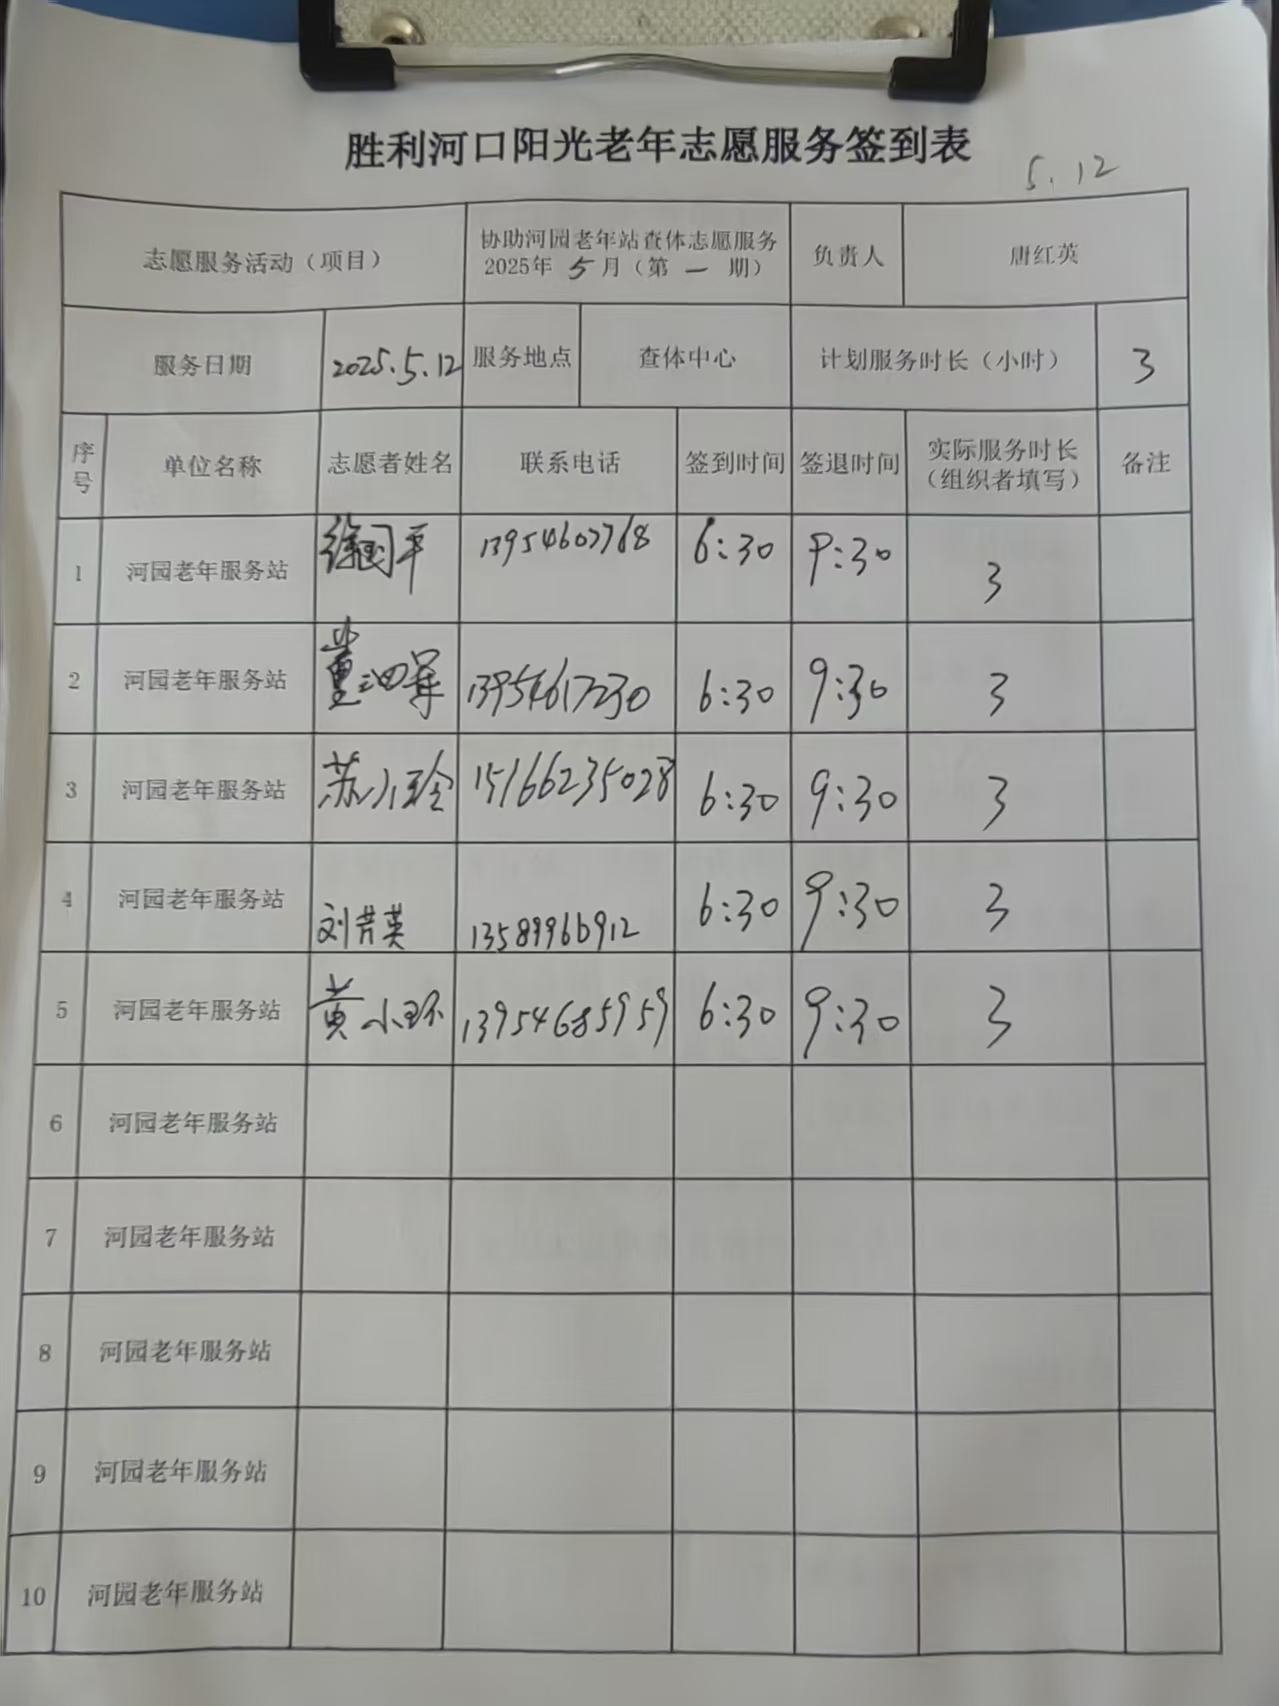 胜利河口阳光老年志愿服务签到表
5.12
志愿服务活动（项目） 协助河园老年站查体志愿服务 2025年5月（第一期） 负责人 唐红英
服务日期 2025.5.12 服务地点 查体中心 计划服务时长（小时） 3
序号 单位名称 志愿者姓名 联系电话 签到时间 签退时间 实际服务时长（组织者填写） 备注
1 河园老年服务站 徐国平 6:30 9:30 3
2 河园老年服务站 13954617230 6:30 9:30 3
3 河园老年服务站 苏小玲 15166235028 6:30 9:30 3
4 河园老年服务站 13589966912 6:30 9:30 3
5 河园老年服务站 黄小环 13954685959 6:30 9:30 3
6 河园老年服务站
7 河园老年服务站
8 河园老年服务站
9 河园老年服务站
10 河园老年服务站